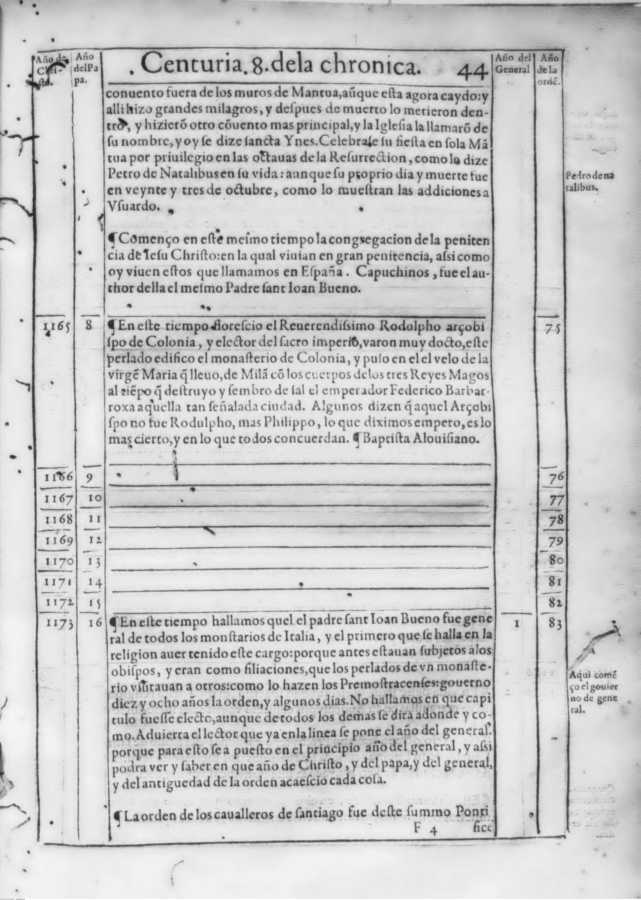 Año de Chri- sto.
Año del Pa pa.
Centuria. 8. dela chronica. 44
Año del General
Año de la ordē.
conuento fuera de los muros de Mantua, aũque esta agora caydo: y
alli hizo grandes milagros, y despues de muerto lo metieron den-
tro, y hizierõ otro cõuento mas principal, y la Iglesia la llamarõ de
su nombre, y oy se dize sancta Ynes. Celebrase su fiesta en sola Mã
tua por priuilegio en las octauas de la Resurrection, como lo dize
Petro de Natalibus en su vida: aunque su proprio dia y muerte fue
en veynte y tres de octubre, como lo muestran las addiciones a
Vsuardo.
Pedro de na
talibus.
¶ Començo en este mesmo tiempo la congregacion de la peniten
cia de Iesu Christo: en la qual viuian en gran penitencia, assi como
oy viuen estos que llamamos en España. Capuchinos, fue el au-
thor della el mesmo Padre sant Ioan Bueno.
1165 8 ¶ En este tiempo florescio el Reuerendissimo Rodolpho arçobi 75
spo de Colonia, y elector del sacro imperio, varon muy docto, este
perlado edifico el monasterio de Colonia, y puso en el el velo de la
virgē Maria q̃ lleuo, de Milã cõ los cuerpos delos tres Reyes Magos
al tiēpo q̃ destruyo y sembro de sal el emperador Federico Barbar-
roxa aquella tan señalada ciudad. Algunos dizen q̃ aquel Arçobi
spo no fue Rodulpho, mas Philippo, lo que diximos empero, es lo
mas cierto, y en lo que todos concuerdan. ¶ Baptista Alouisiano.
1166 9 76
1167 10 77
1168 11 78
1169 12 79
1170 13 80
1171 14 81
1172 15 82
1173 16 ¶ En este tiempo hallamos quel el padre sant Ioan Bueno fue gene 1 83
ral de todos los monstarios de Italia, y el primero que se halla en la
religion auer tenido este cargo: porque antes estauan subjetos a los
obispos, y eran como filiaciones, que los perlados de vn monaste-
rio visitauan a otros: como lo hazen los Premostracenses: gouerno
diez y ocho años la orden, y algunos dias. No hallamos en que capi
tulo fuesse electo, aunque de todos los demas se dira adonde y co-
mo. Aduierta el lector que ya en la linea se pone el año del general.
porque para esto se a puesto en el principio año del general, y assi
podra ver y saber en que año de Christo, y del papa, y del general,
y del antiguedad de la orden acaescio cada cosa.
Aqui comē
ço el gouier
no de gene
ral.
¶ La orden de los caualleros de santiago fue deste summo Ponti
F 4 fice